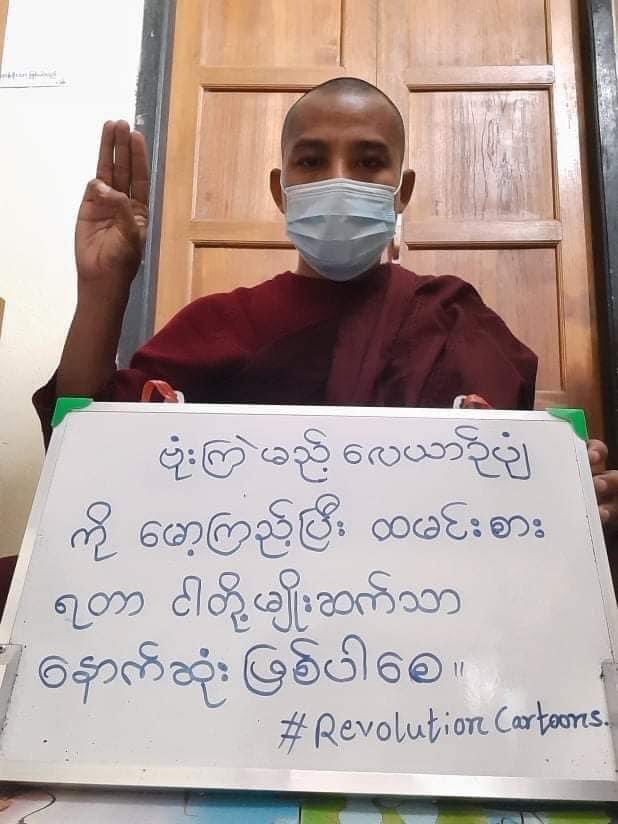 ဗုံးကြဲမည့် လေယာဉ်ပျံ
ကို မော့ကြည့်ပြီး ထမင်းစား
ရတာ ငါတို့မျိုးဆက်သာ
နောက်ဆုံး ဖြစ်ပါစေ။
#Revolution Cartoons.